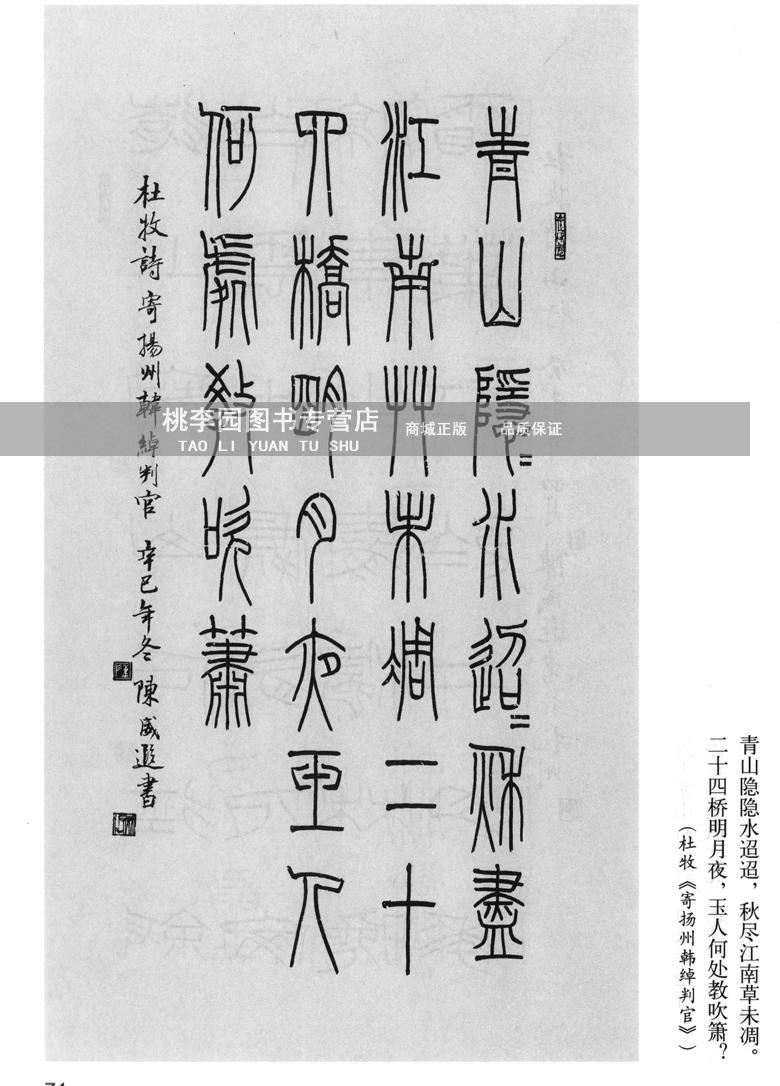 青山隱=水迢=秌盡
江南艸未凋二十
四橋明月夜玉人
何處教吹簫
杜牧詩寄揚州韓綽判官 辛巳年冬 陳盛遐書
青山隐隐水迢迢，秋尽江南草未凋。
二十四桥明月夜，玉人何处教吹箫？
（杜牧《寄扬州韩绰判官》）
桃李园图书专营店
TAO LI YUAN TU SHU
商城正版 品质保证